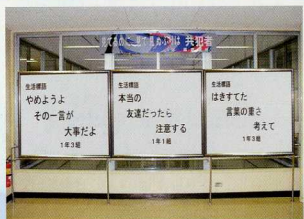 見て見ぬふりは 共犯者
生活標語
やめようよ
その一言が
大事だよ
1年3組
生活標語
本当の
友達だったら
注意する
1年1組
生活標語
はきすてた
言葉の重さ
考えて
1年3組